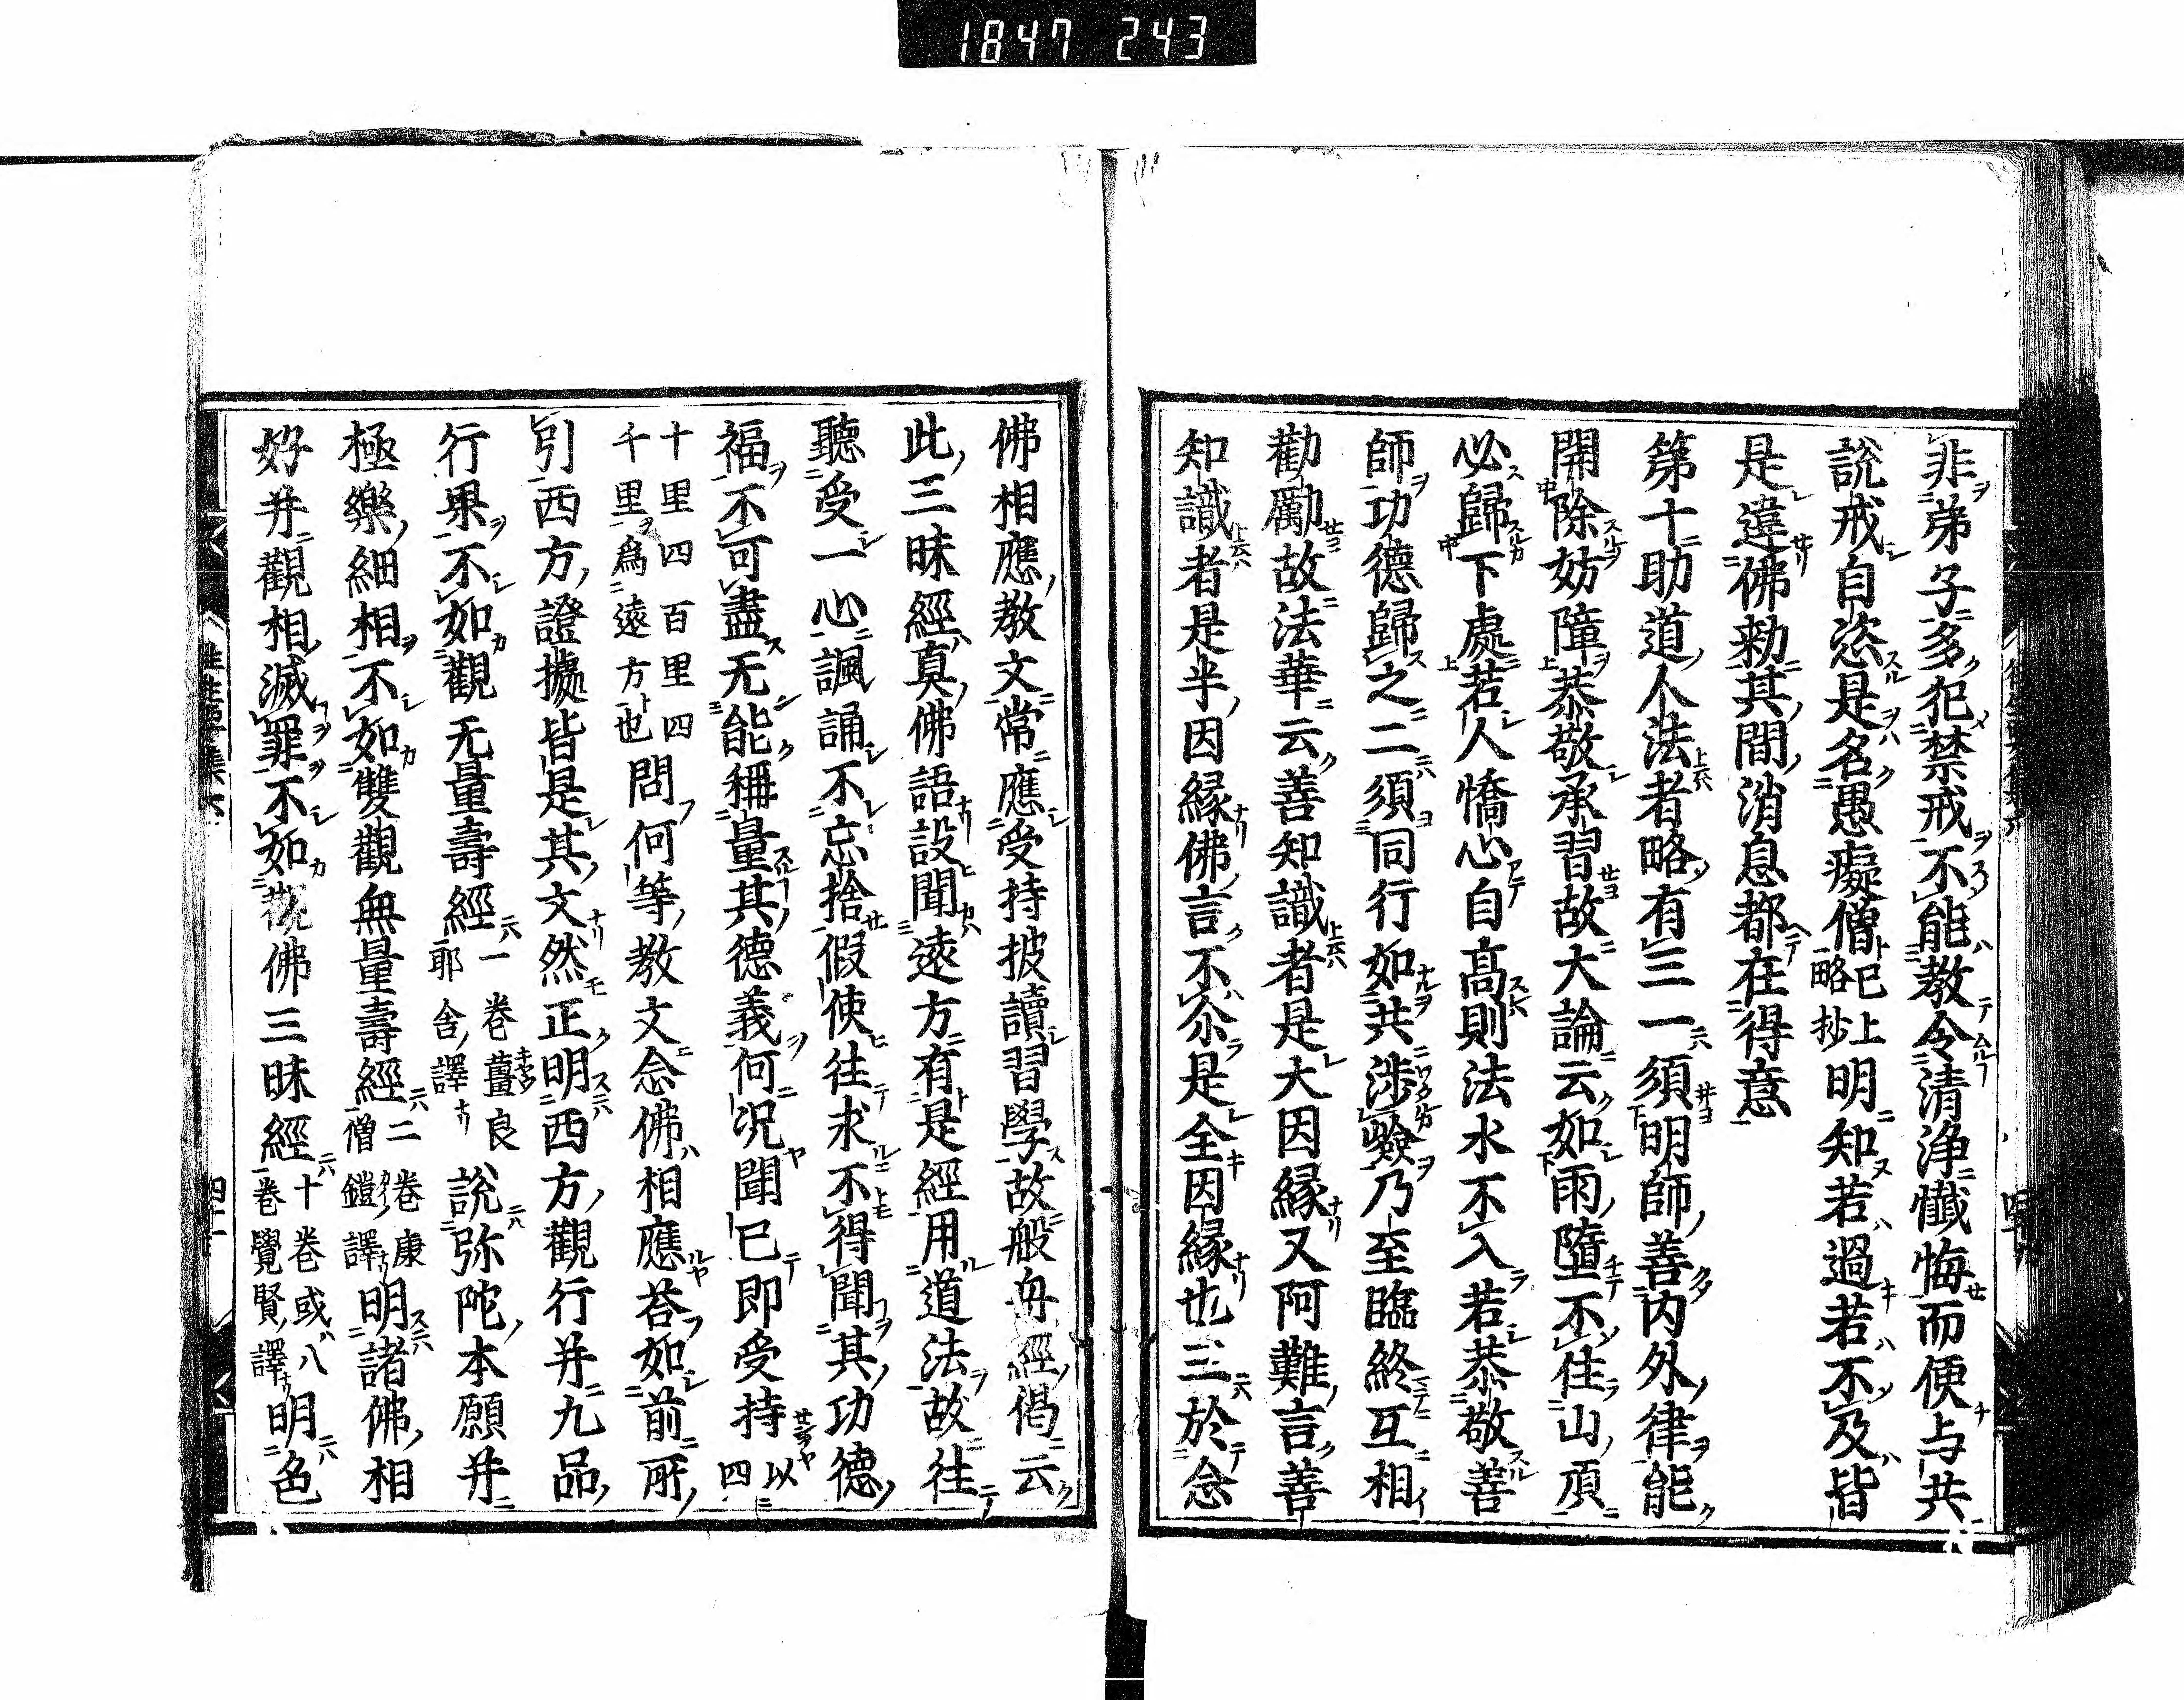 1847 243
非弟子多犯禁戒不能教令清浄懺悔而便与共
說戒自恣是名愚癡僧已上略抄明知若過若不及皆
是違佛勅其間消息都在得意
第十助道人法者略有三一須明師善内外律能
開除妨障恭敬承習故大論云如雨墮不住山頂
必歸下處若人憍心自高則法水不入若恭敬善
師功德歸之二須同行如共涉嶮乃至臨終互相
勸勵故法華云善知識者是大因縁又阿難言善
知識者是半因縁佛言不尒是全因縁也三於念
佛相應教文常應受持披讀習學故般舟經偈云
此三昧經真佛語設聞遠方有是經用道法故往
聽受一心諷誦不忘捨假使往求不得聞其功德
福不可盡无能稱量其德義何况聞已即受持以四
十里四百里四千里爲遠方也問何等教文念佛相應荅如前所
引西方證據皆是其文然正明西方觀行并九品
行果不如觀无量壽經一卷畺良耶舍譯說弥陀本願并
極樂細相不如雙觀無量壽經二卷康僧鎧譯明諸佛相
好并觀相滅罪不如觀佛三昧經十卷或八卷覺賢譯明色